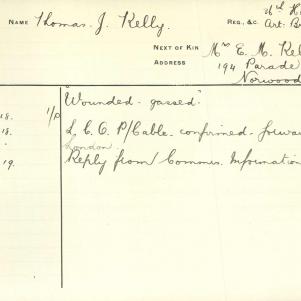 NAME Thomas. J. Kelly. REG., &C. Art. B
NEXT OF KIN Mrs E. M. Kel
ADDRESS 194 Parade
Norwood
"Wounded - gassed"
18. 1/0 L. C. O. P/Cable - confirmed - forwar
18.
London
19. Reply from Commrs. Information